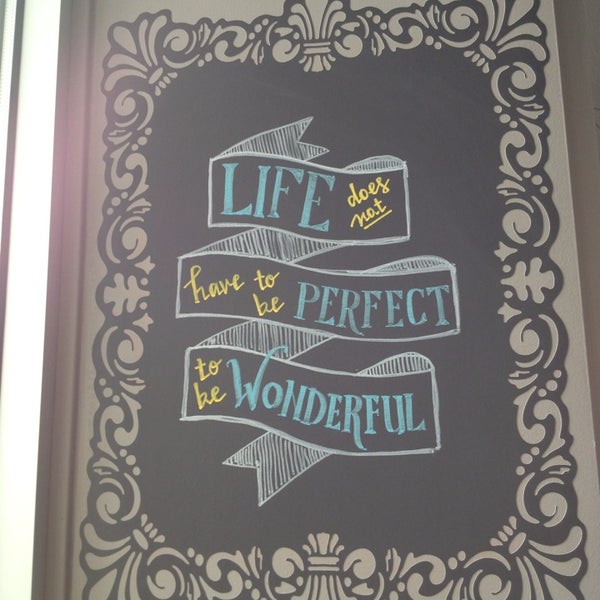 LIFE does not
have to be PERFECT
to be WONDERFUL